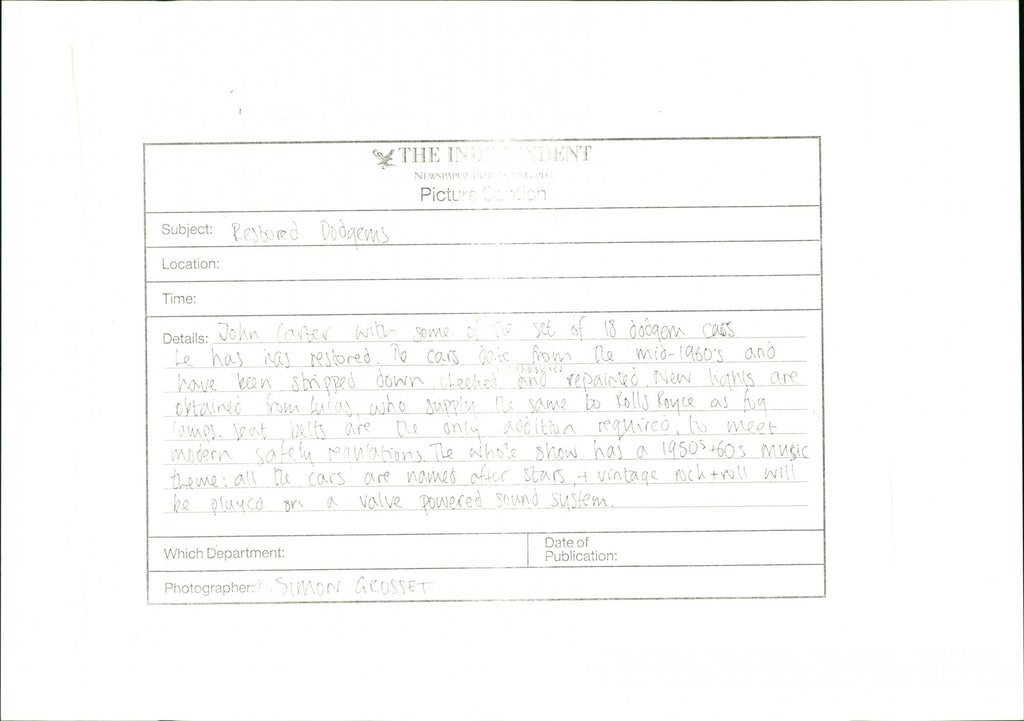 THE INDEPENDENT
NEWSPAPER PUBLISHING PLC
Picture Caption
Subject: Restored Dodgems
Location:
Time:
Details: John Carter with some of the set of 18 dodgem cars
he has has restored. The cars date from the mid-1960's and
have been stripped down, checked and repainted. New lights are
obtained from Lucas, who supply the same to Rolls Royce as fog
lamps. Seat belts are the only addition required, to meet
modern safety regulations. The whole show has a 1950s+60s music
theme: all the cars are named after stars, + vintage rock+roll will
be played on a valve powered sound system.
Which Department:
Date of
Publication:
Photographer: SIMON GROSSET